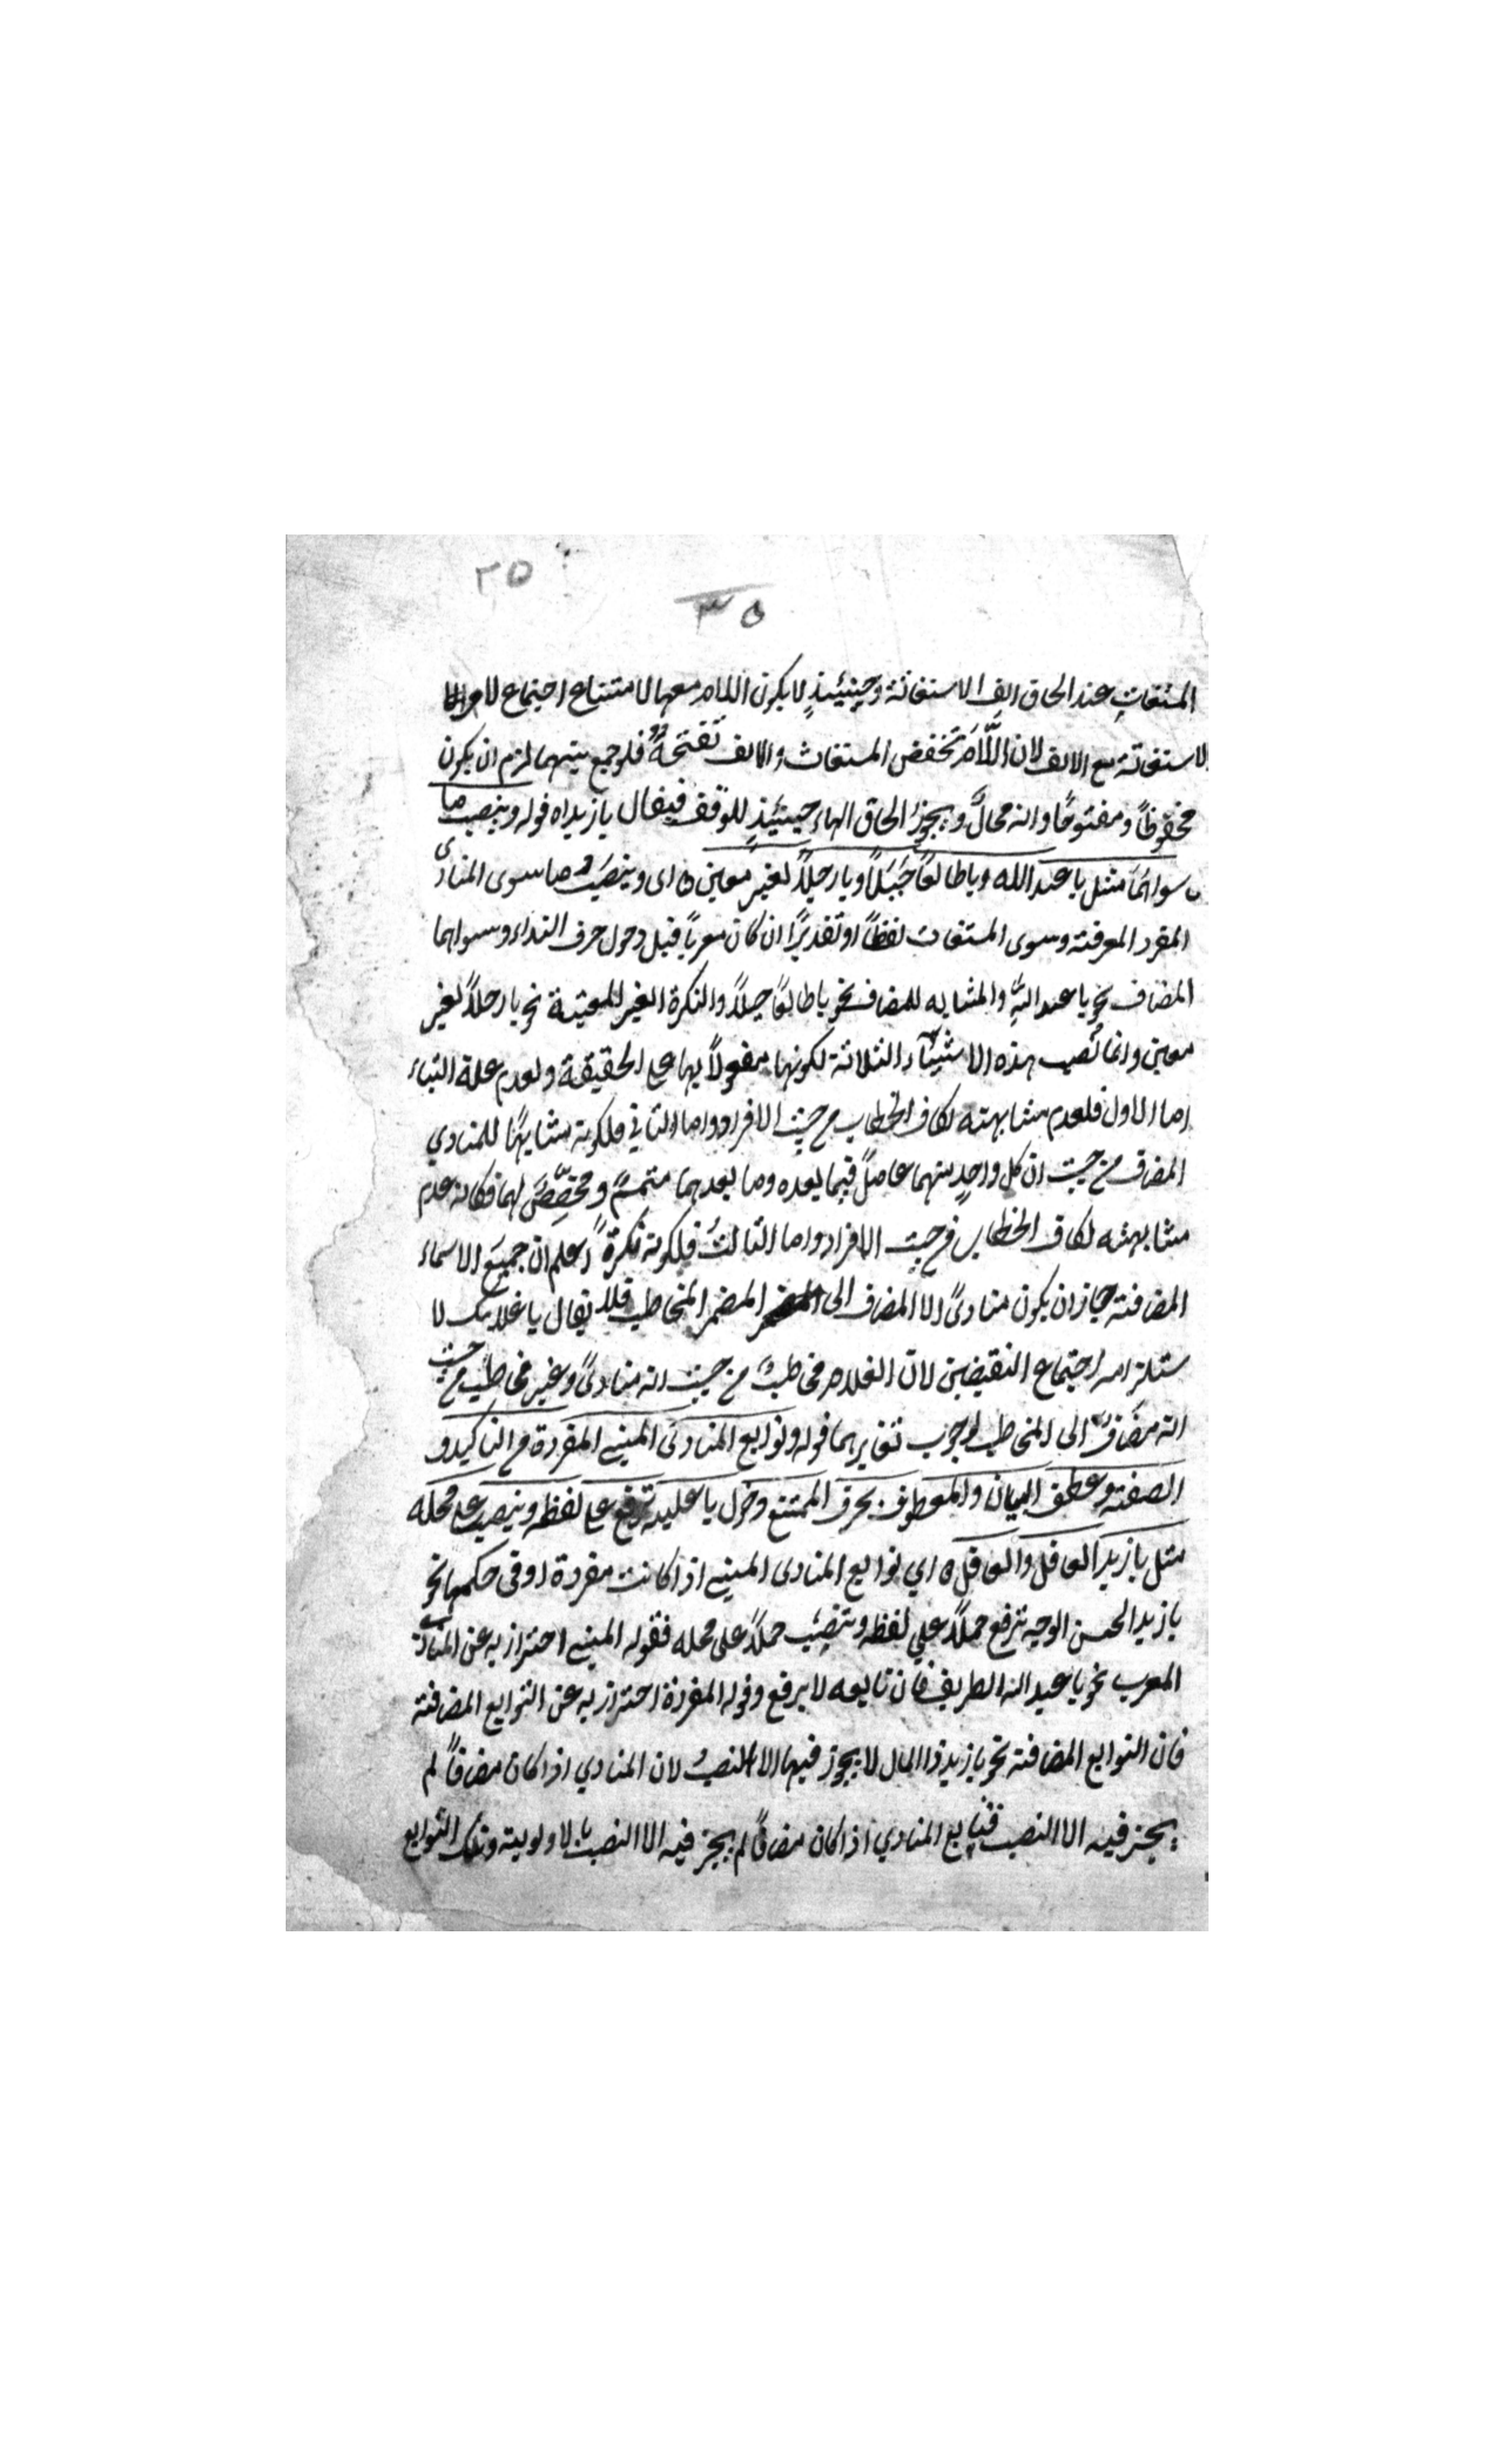 ٢٥
٣٥
المستغاث عند الحاق الف الاستغاثة وحينئذٍ لا يكون اللام معها لامتناع اجتماع لام
الاستغاثة مع الالف لان اللّامَ تخفض المستغاث والالف تفتحهُ فلو جمع بينهما لزم ان يكون
مخفوظًا ومفتوحًا وانه محالٌ ويجوز الحاق الهاء حينئذٍ للوقف فيقال يا زيداه قوله وينصب ما
سواهما مثل يا عبد الله ويا طالعًا جَبَلًا ويا رجلًا لغير معين ه اى وينصَبُ ما سوى المنادى
المفرد المعرفة وسوى المستغاث لفظًا او تقديرًا ان كان معربًا قبل دخول حرف النداء وسواهما
المضاف نحو يا عبد اللهِ والمشابه للمضاف نحو يا طالعًا جبلًا والنكرة الغير المعينة نحو يا رجلًا لغير
معين وانما نُصب هذه الاشيآء الثلاثة لكونها مفعولًا بها على الحقيقة ولعدم علة البناء
اما الاول فلعدم مشابهته لكاف الخطاب من حيث الافراد واما الثاني فلكونه مشابهًا للمنادي
المضاف من حيث ان كل واحدٍ منهما عاملٌ فيما بعده وما بعدهما متممٌ ومخصِّصٌ لهما فكانه عدم
مشابهته لكاف الخطاب من حيث الافراد واما الثالثُ فلكونه نكرةً اعلم ان جميعَ الاسماء
المضافة جاز ان يكون منادىً الا المضاف الى المضمر المخاطب فلا يقال يا غلامك لا
ستلزامه اجتماع النقيضين لان الغلام مخاطبٌ من حيث انه منادىً وغير مخاطبٍ من حيث
انه مضافٌ الى المخاطب لوجوب تغايرهما قوله وتوابع المنادى المبني المفردة من التاكيد و
الصفة وعطف البيان والمعطوف بحرف الممتنع دخول يا عليه ترفع على لفظه وينصب على محله
مثل يا زيد العاقل والعاقل ه اي توابع المنادى المبني اذا كانت مفردة او في حكمها نحو
يا زيد الحسن الوجه ترفع حملًا علي لفظه وتنصب حملًا على محله فقوله المبني احتراز به عن المنادى
المعرب نحو يا عبد الله الظريف فان تابعه لا يرفع وقوله المفردة احتراز به عن التوابع المضافة
فان التوابع المضافة نحو يا زيد ذا المال لا يجوز فيها الا النصبُ لان المنادي اذا كان مضافًا لم
يجز فيه الا النصب فتابع المنادي اذا كان مضافًا لم يجز فيه الا النصب بالاولوية وتلك التوابع